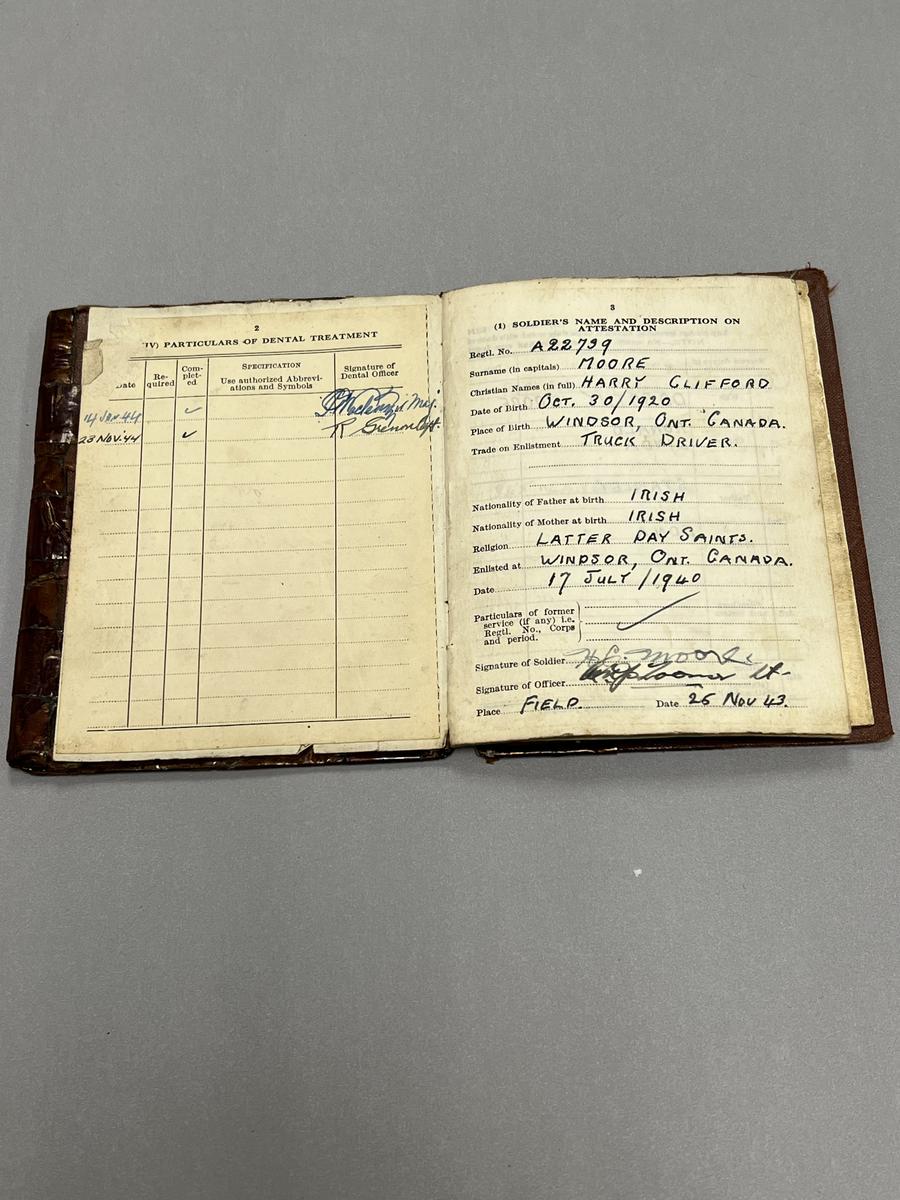 2
IV) PARTICULARS OF DENTAL TREATMENT
Date
Re-
quired
Com-
plet-
ed
SPECIFICATION
Use authorized Abbrevi-
ations and Symbols
Signature of
Dental Officer
14 JAN 44 ✓
23 NOV. 44 ✓ R
3
(1) SOLDIER'S NAME AND DESCRIPTION ON
ATTESTATION
Regtl. No. A22739
Surname (in capitals) MOORE
Christian Names (in full) HARRY CLIFFORD
Date of Birth OCT. 30/1920
Place of Birth WINDSOR, ONT. CANADA.
Trade on Enlistment TRUCK DRIVER.
Nationality of Father at birth IRISH
Nationality of Mother at birth IRISH
Religion LATTER DAY SAINTS.
Enlisted at WINDSOR, ONT. CANADA.
Date 17 JULY /1940
Particulars of former
service (if any) i.e.
Regtl. No., Corps
and period. ✓
Signature of Soldier H.C. Moore
Signature of Officer Lt.
Place FIELD. Date 25 NOV 43.